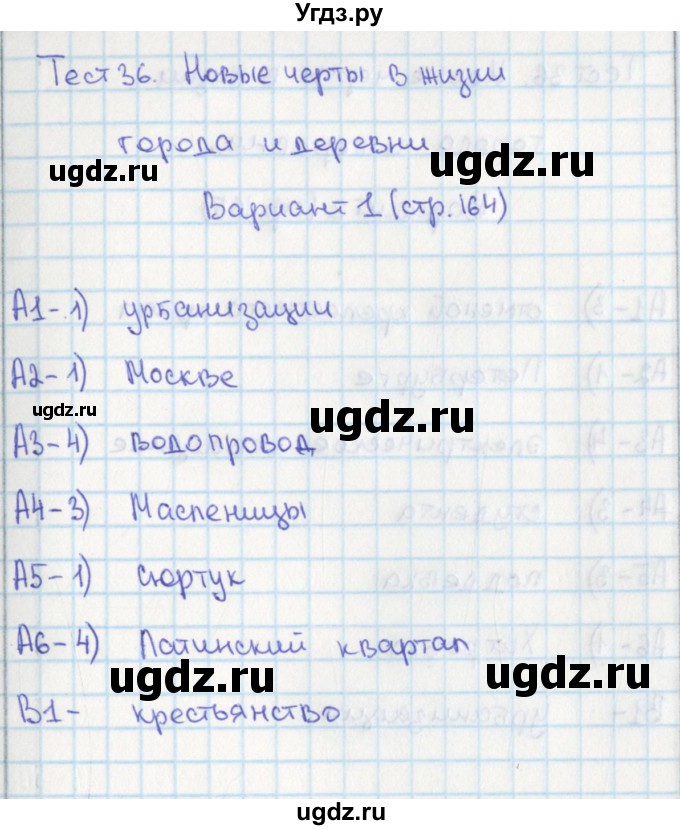 Угдз.ру
Тест 36. Новые черты в жизни
города и деревни
ugdz.ru
ugdz.ru
Вариант 1 (стр. 164)
А1 - 1) урбанизации
А2 - 1) Москве
ugdz.ru
ugdz.ru
А3 - 4) водопровод
А4 - 3) Масленицы
ugdz.ru
ugdz.ru
А5 - 1) сюртук
А6 - 4) Латинский квартал
ugdz.ru
ugdz.ru
В1 - крестьянство
ugdz.ru